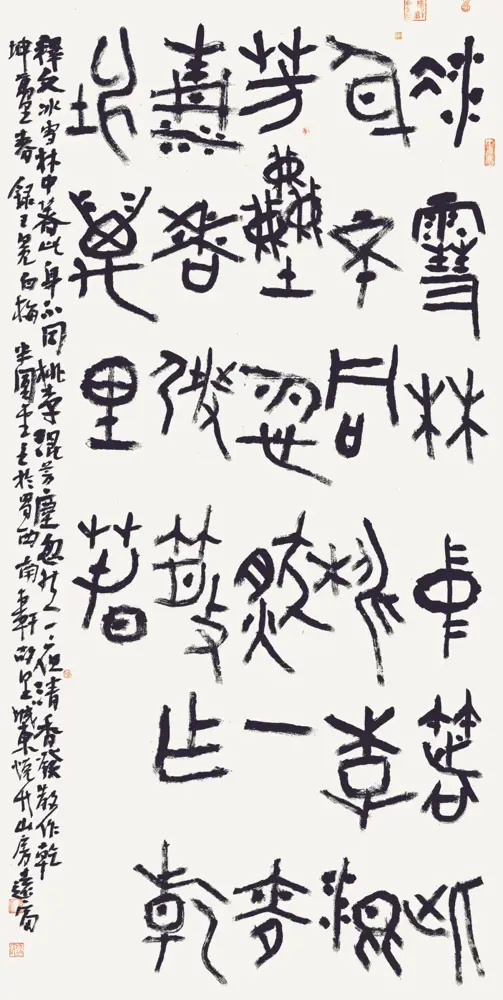 冰雪林中著此
身不同桃李混
芳塵忽然一夜
清香發散作乾
坤萬里春
釋文冰雪林中著此身不同桃李混芳塵忽然一夜清香發散作乾
坤萬里春 錄王冕白梅 於蜀西南軒故里城東山房